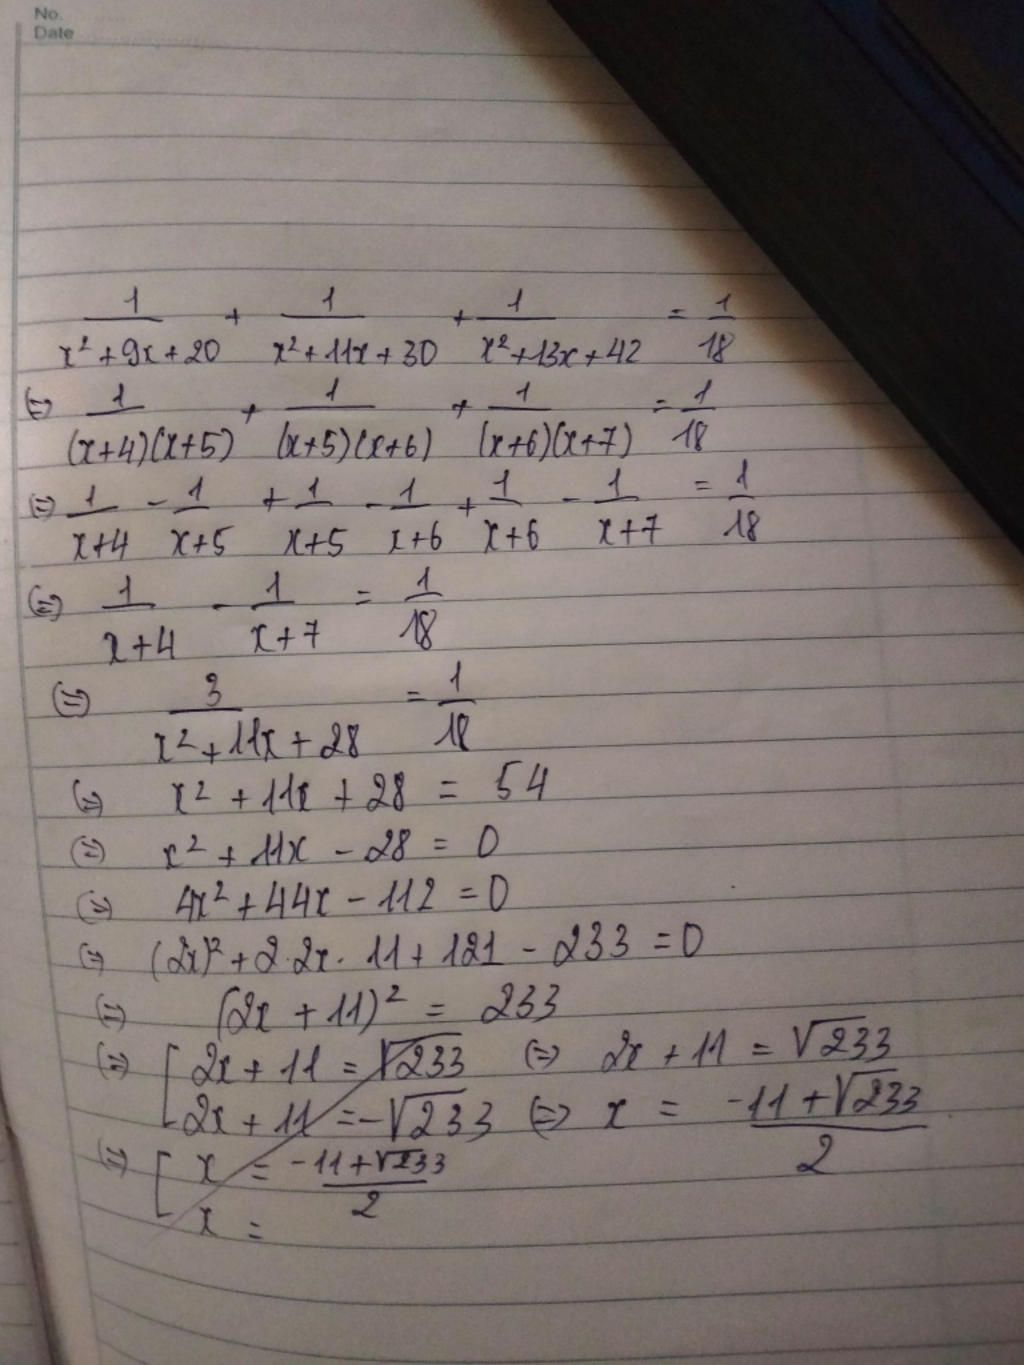 No.
Date
1/(x² + 9x + 20) + 1/(x² + 11x + 30) + 1/(x² + 13x + 42) = 1/18
(=) 1/((x+4)(x+5)) + 1/((x+5)(x+6)) + 1/((x+6)(x+7)) = 1/18
(=) 1/(x+4) - 1/(x+5) + 1/(x+5) - 1/(x+6) + 1/(x+6) - 1/(x+7) = 1/18
(=) 1/(x+4) - 1/(x+7) = 1/18
(=) 3/(x² + 11x + 28) = 1/18
(=) x² + 11x + 28 = 54
(=) x² + 11x - 28 = 0
(=) 4x² + 44x - 112 = 0
(=) (2x)² + 2.2x.11 + 121 - 233 = 0
(=) (2x + 11)² = 233
(=) [ 2x + 11 = √233 (=) 2x + 11 = √233
2x + 11 = -√233 (=) x = (-11 + √233)/2
(=) [ x = (-11 + √233)/2
x =